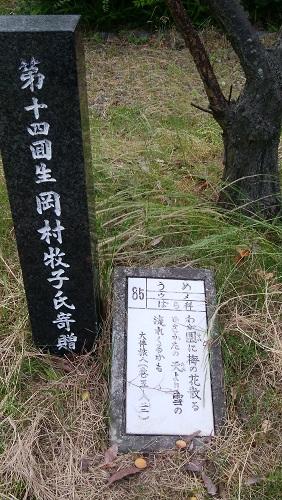 第十四回生 岡村牧子氏寄贈
85
うめ
うめ
ばら科
わが園に梅の花散る
ひさかたの 天より雪の
流れくるかも
大伴旅人(巻五 八二二)